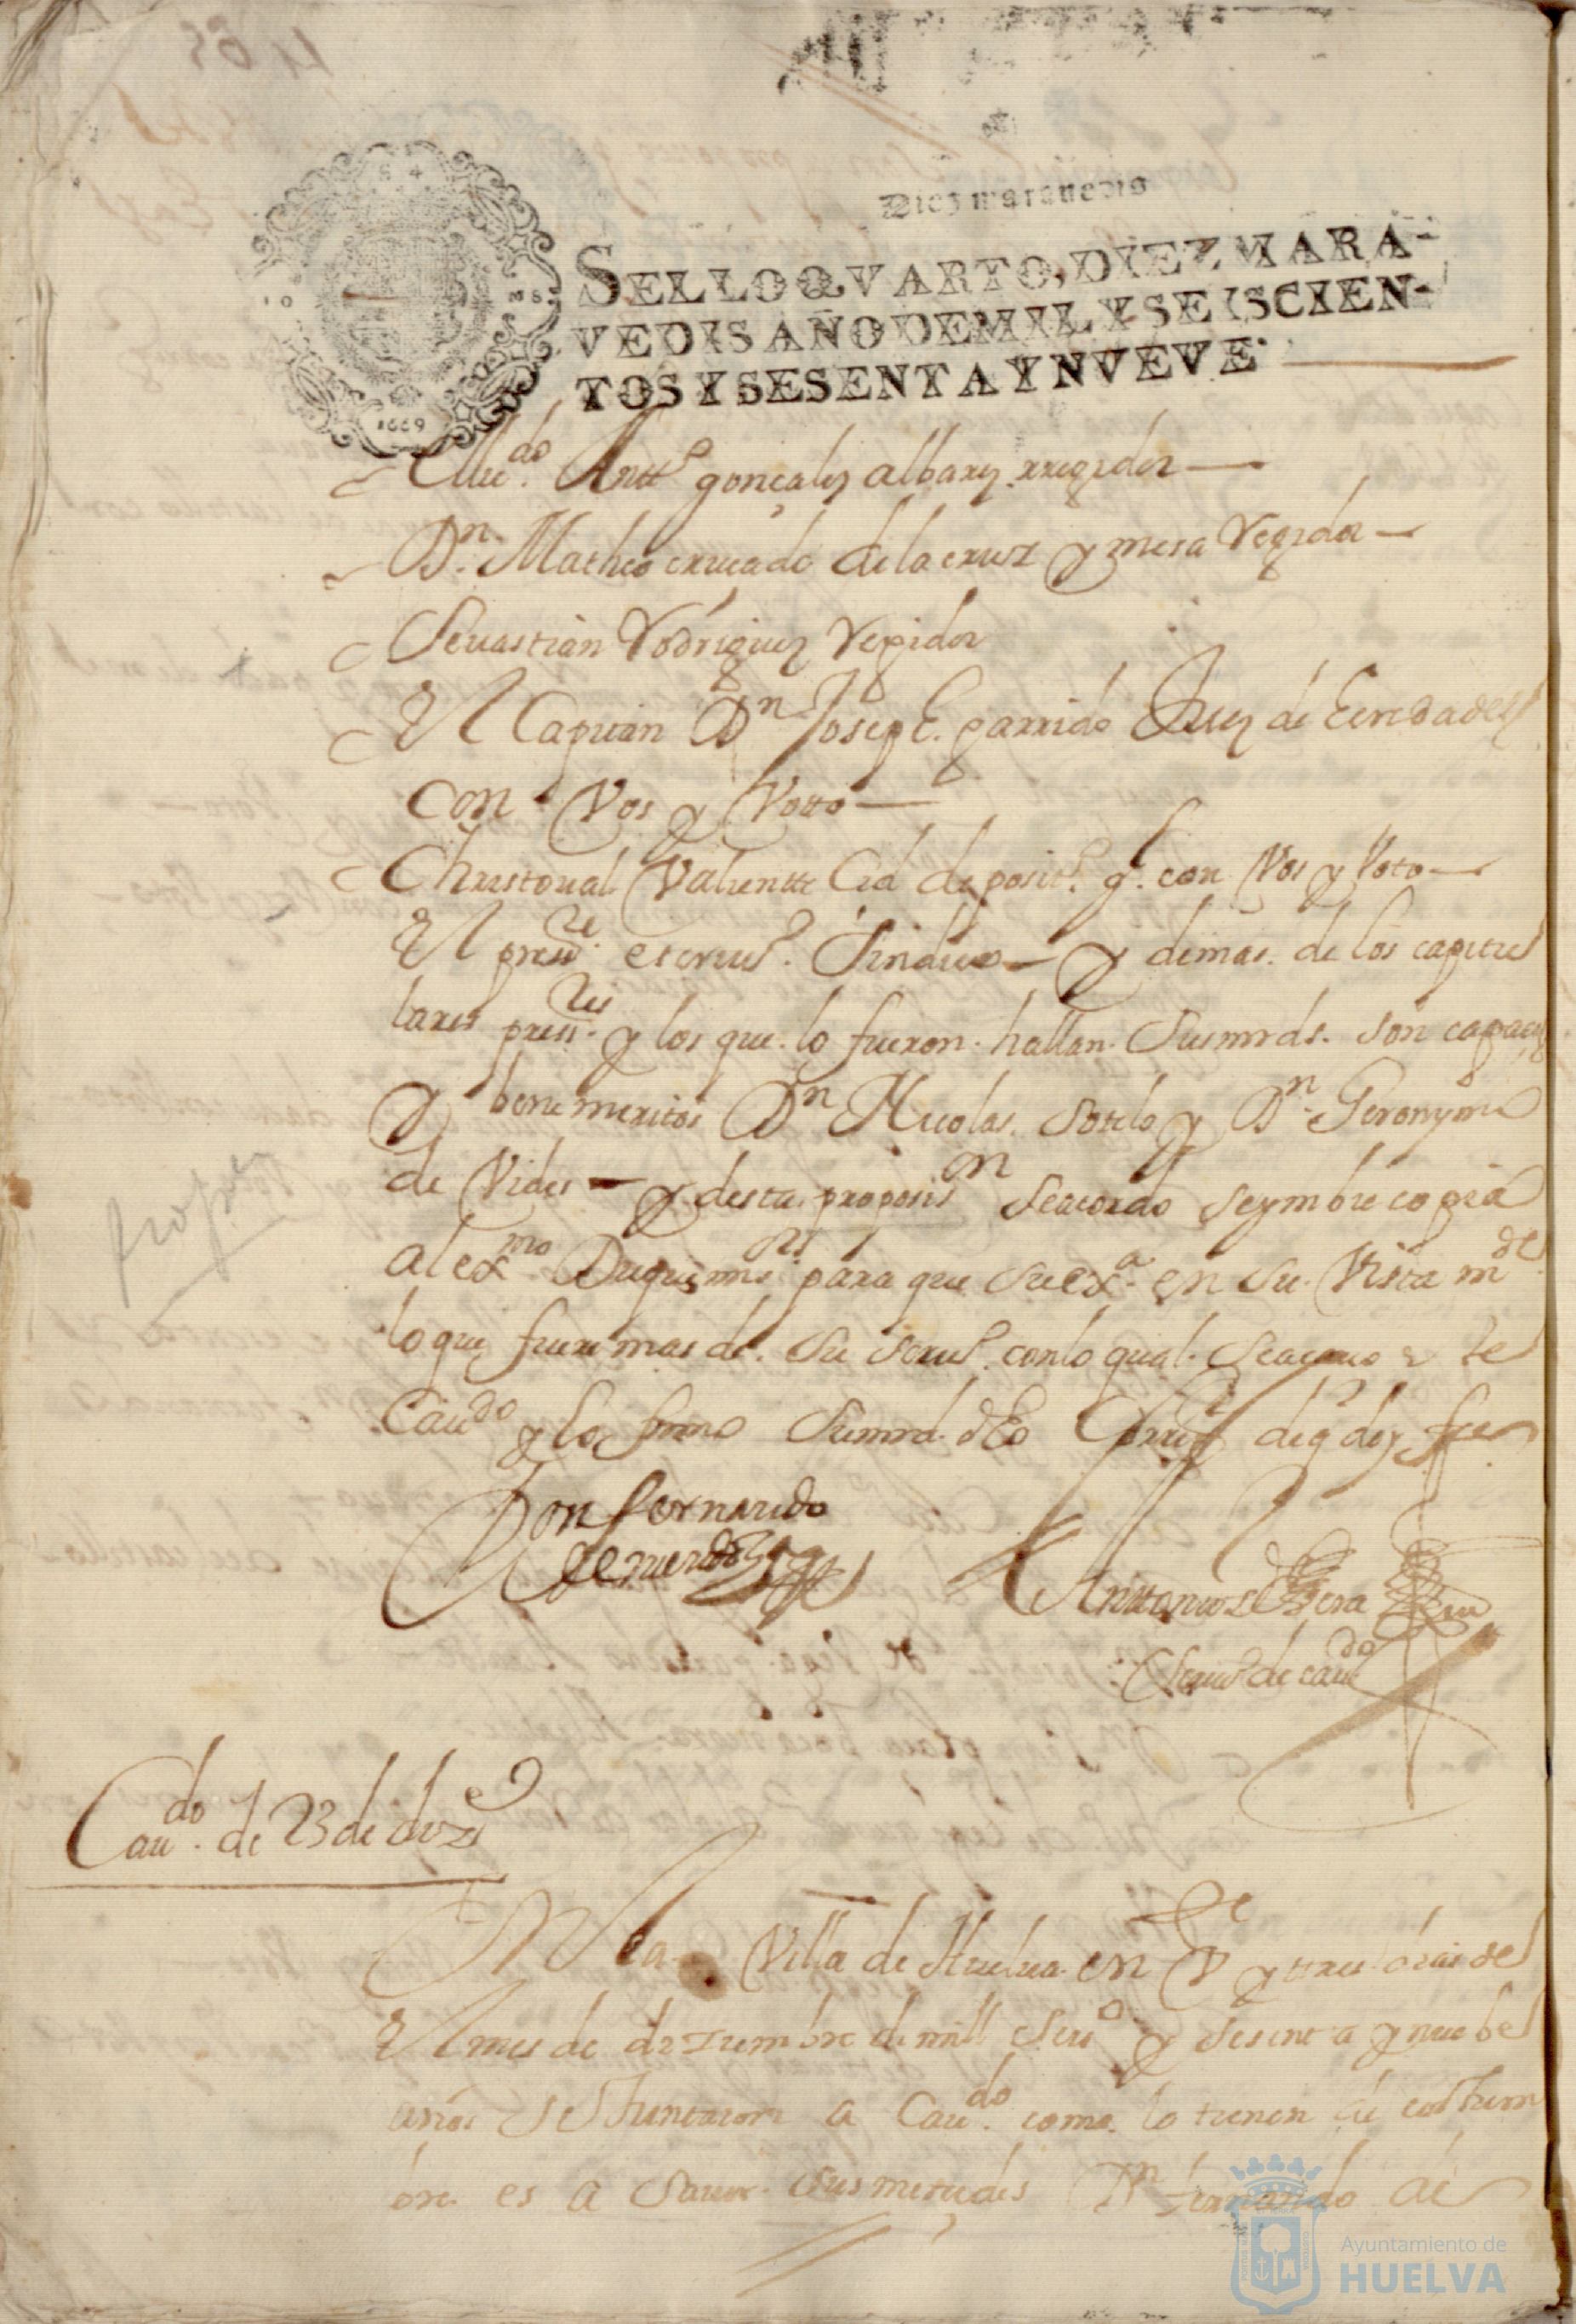 Diez maravedis
SELLO QVARTO, DIEZ MARA-
VEDIS AÑO DE MIL Y SEISCIEN-
TOS Y SESENTA Y NVEVE
1669
Lliẽdo. Antto gonçales albarez. rregidor
Dn. Matheo cruçado de la cruz y mesa Regidor
Seuastian Rodriguez Regidor
El Capitan Dn Joseph. garrido Juez de heredades
con Vos y Votto
Christoual Valiente Cid deposito. gl. con Vos y Voto
El presste. escriuo. Sindico y demas. de los capitu
lares presstes. y los que. lo fueron. hallan. Susmrds. son capaces
y benemeritos Dn Nicolas. sotelo y Dn. Geronymo
de Vides y desta. proposision se acordo se ymbie copia
al exmo Duque mi sr para que su exa. en su. Vista mde
lo que fuere mas de. su seruo. con lo qual. se acauo este
Caudo y lo firmo Sumrd. dho Corror de q doy fee
Don fernando
Antonio
Scriuo de caudo
Caudo. de 23 de dize
En la Villa de Huelua. en Ve y tres dias del
El mes de diziembre de mill seiso y sesenta y nuebe
años se Juntaron a Caudo. como. lo tienen de costum
bre. es a sauer. sus mercedes Dn fernando de
Ayuntamiento de
HUELVA